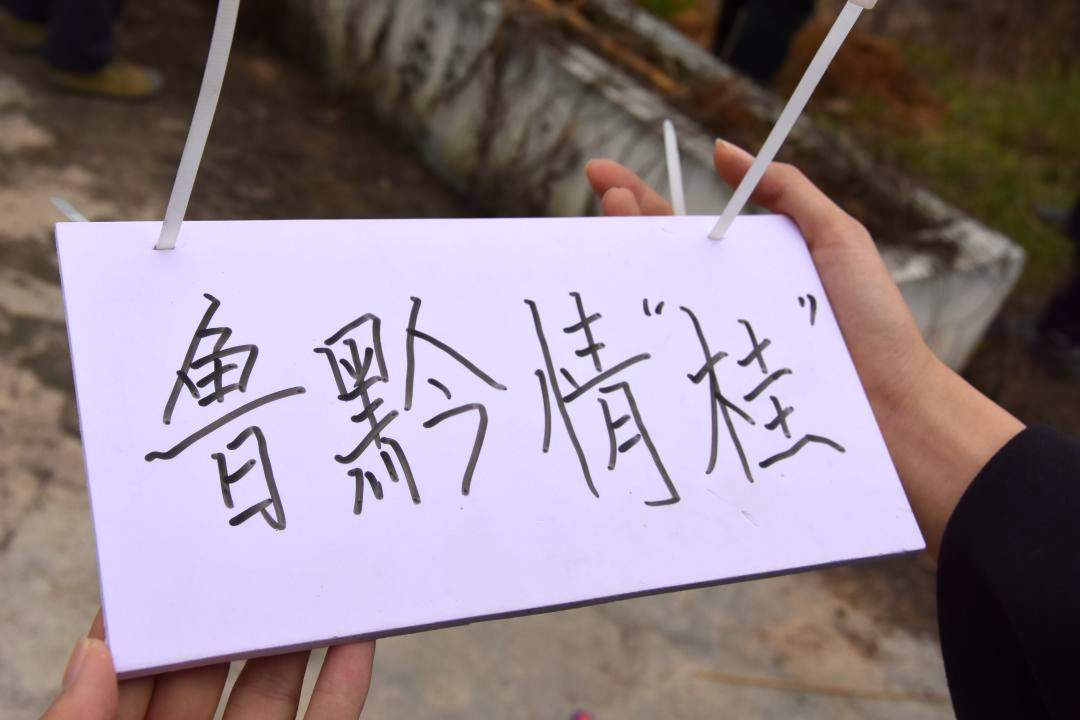 鲁黔情“桂”